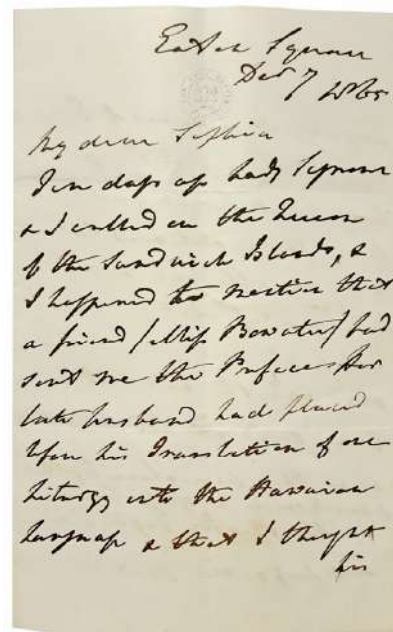 Eaton Square
Dec 7 1865
My dear Sophia
Ten days ago Lady Seymour
& I called on the Queen
of the Sandwich Islands, &
I happened to mention that
a friend (Miss Bowater) had
sent me the Preface her
late husband had placed
upon his Translation of our
Liturgy into the Hawaiian
language & that I thought
his